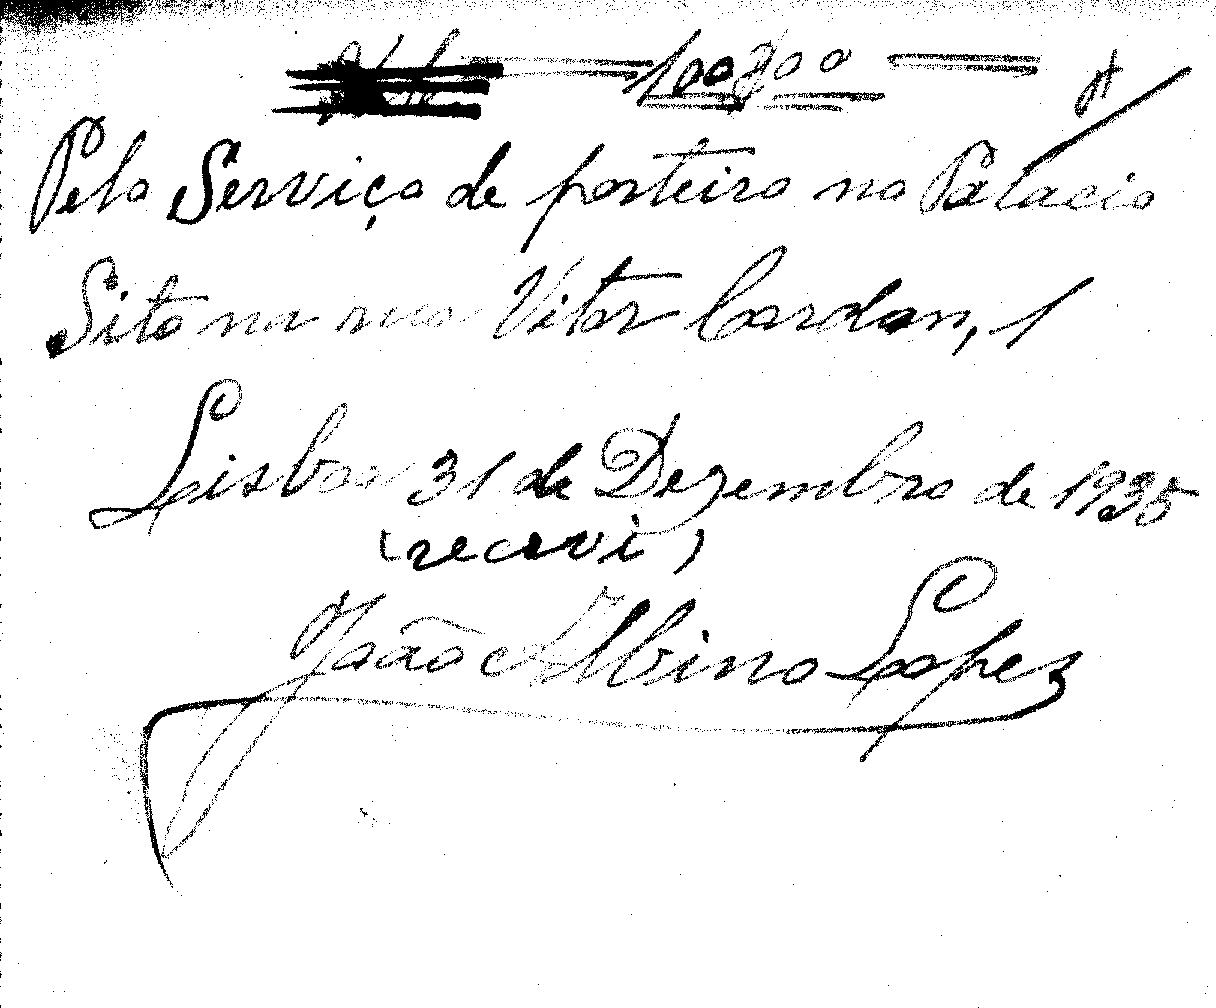 100$00
Pelo Serviço de porteiro no Palacio
Sito na rua Vitor Cardon, 1
Lisboa 31 de Dezembro de 1935
(recevi)
João Albino Lopes